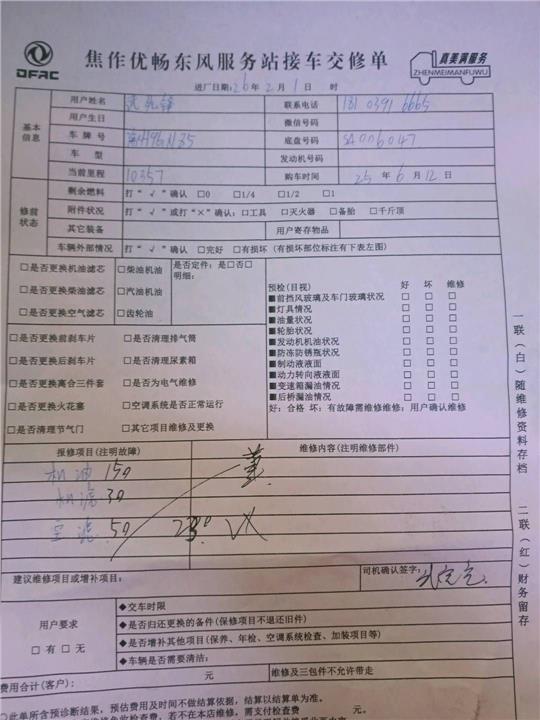 DFAC
焦作优畅东风服务站接车交修单
真美满服务
ZHENMEIMANFUWU
进厂日期:26年2月1日 时
基本信息
用户姓名
联系电话 181 0391 6665
用户生日
微信号码
车牌号
底盘号码 SA006047
车型
发动机号码
当前里程 10357
购车时间 25年6月12日
修前状态
剩余燃料 打“√”确认 □0 □1/4 □1/2 □1
附件状况 打“√”或打“×”确认:□工具 □灭火器 □备胎 □千斤顶
其它装备
用户寄存物品
车辆外部情况 打“√”确认 □完好 □有损坏(有损坏部位标注有下表左图)
□是否更换机油滤芯 □柴油机油
□是否更换柴油滤芯 □汽油机油
□是否更换空气滤芯 □齿轮油
是否定件:是□否□
明细:
□是否更换前刹车片 □是否清理排气筒
□是否更换后刹车片 □是否清理尿素箱
□是否更换离合三件套 □是否为电气维修
□是否更换火花塞 □空调系统是否正常运行
□是否清理节气门 □其它项目维修及更换
预检(目视) 好 坏 维修
■前挡风玻璃及车门玻璃状况 □ □ □
■灯具情况 □ □ □
■油量状况 □ □ □
■轮胎状况 □ □ □
■发动机机油状况 □ □ □
■防冻防锈瓶状况 □ □ □
■制动液液面 □ □ □
■动力转向液液面 □ □ □
■变速箱漏油情况 □ □ □
■后桥漏油情况 □ □ □
好:合格 坏:有故障需维修维修:用户确认维修
报修项目(注明故障)
维修内容(注明维修部件)
机油 150
机滤 30
空滤 50 230
建议维修项目或增补项目:
司机确认签字:
用户要求
□有 □无
◆交车时限
◆是否归还更换的备件(保修项目不退还旧件)
◆是否增补其他项目(保养、年检、空调系统检查、加装项目等)
◆车辆是否需要清洁:
费用合计(客户): 元
维修及三包件不允许带走
□此单所含预诊断结果,预估费用及时间不做结算依据,结算以结算单为准。
若不在本店维修,需支付检查费 元
一联(白)随维修资料存档
二联(红)财务留存